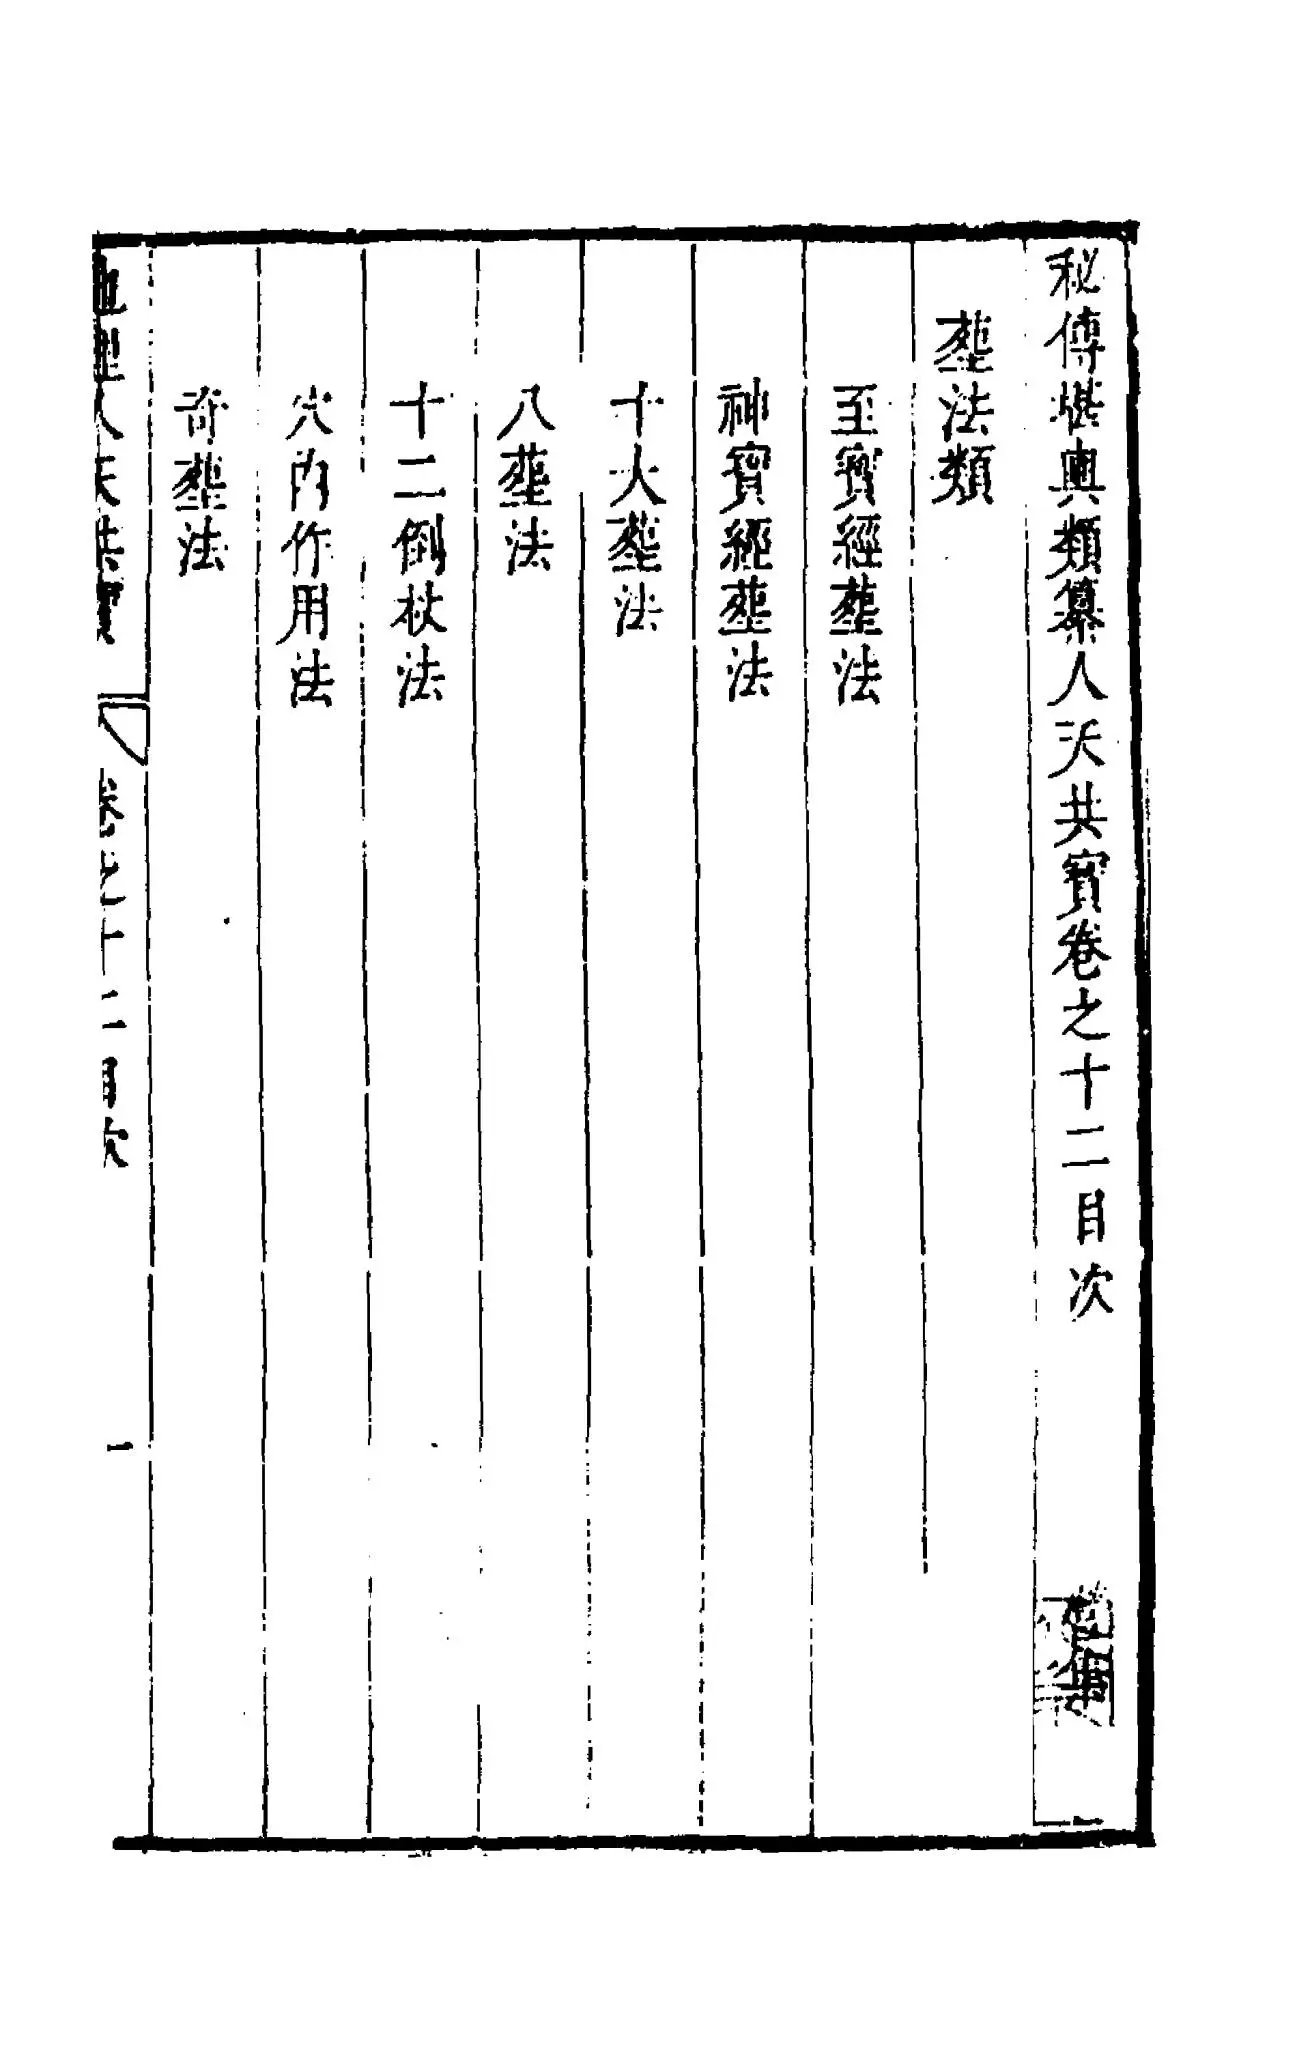 秘傳堪輿類纂人天共寳卷之十二目次
塟法類
至寳經塟法
神寳經塟法
十大塟法
八塟法
十二倒杖法
穴內作用法
奇塟法
地理人天共寳 卷之十二目次 一